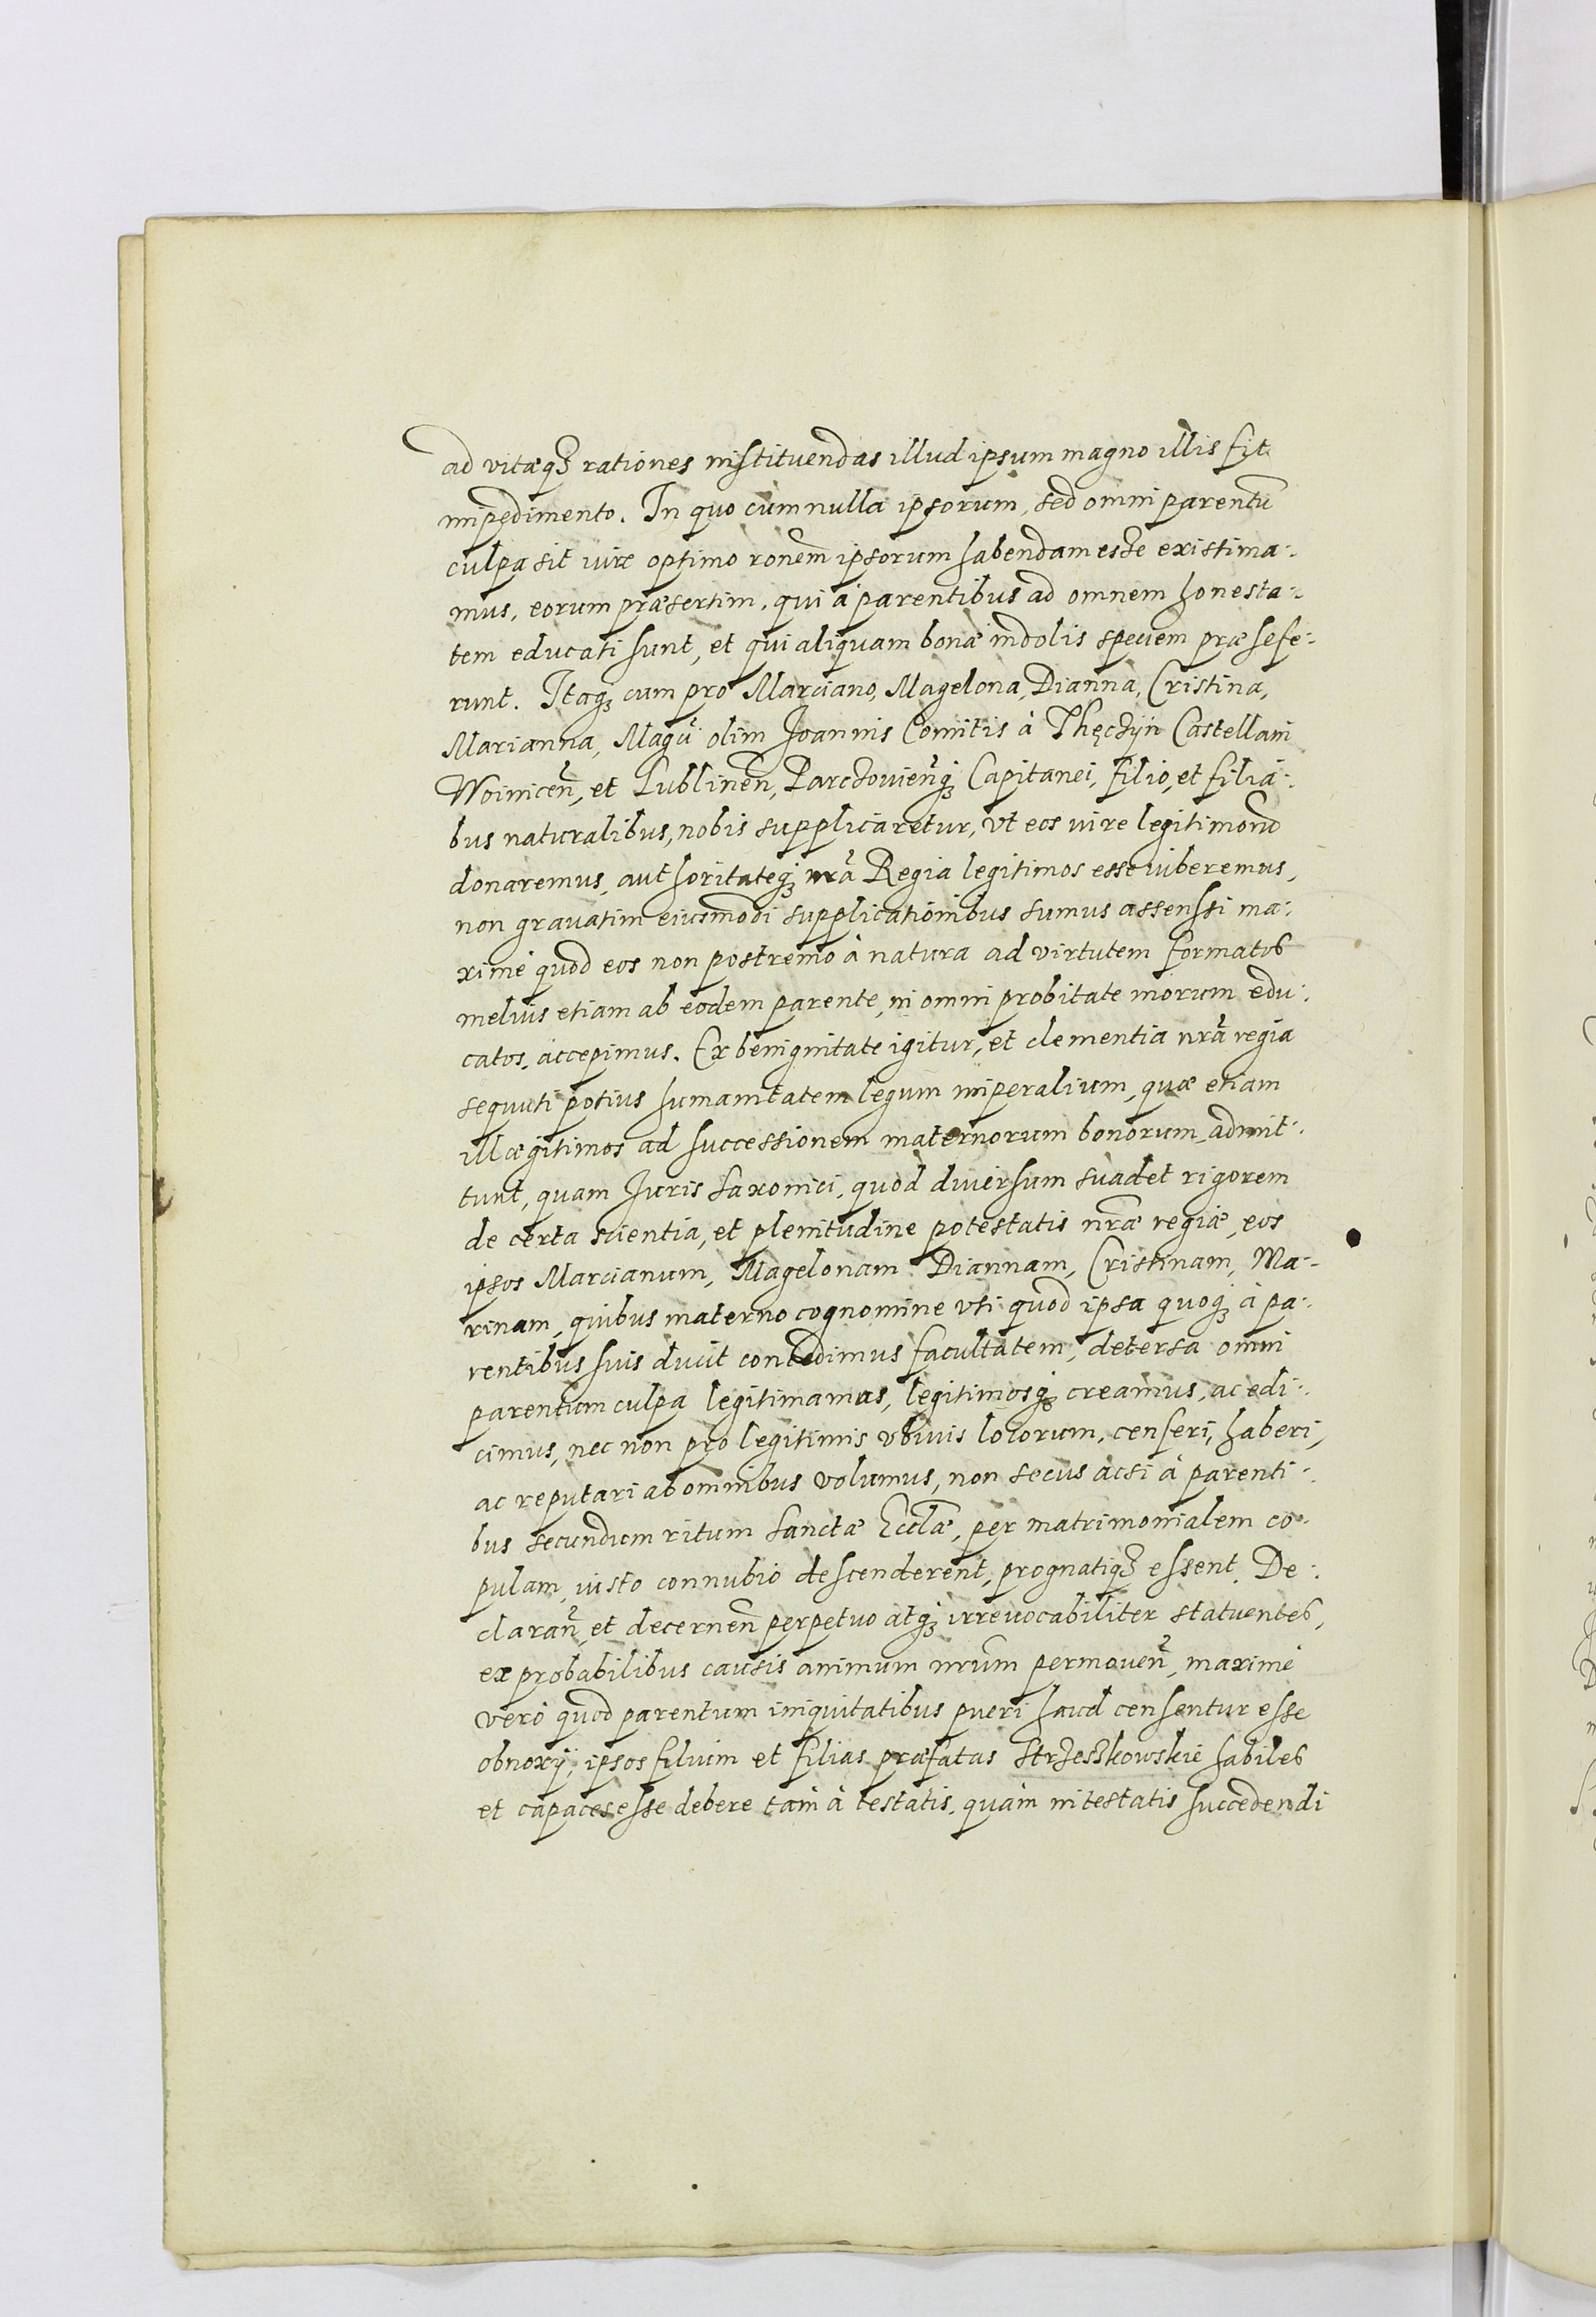 ad vitæq₃ rationes instituendas illud ipsum magno illis fit
impedimento. In quo cum nulla ipsorum, sed omni parentū
culpa sit iure optimo ronem̄ ipsorum habendam esse existima⹀
mus, eorum præsertim, qui à parentibus ad omnem honesta⹀
tem educati sunt, et qui aliquam bonæ indolis speciem præ sefe⹀
runt. Itaq₃ cum pro Marciano, Magelona, Dianna, Cristina,
Marianna, Magci olim Joannis Comitis à Thęczÿn Castellani
Woinicen̄, et Lublinen̄, Parczouien̄q₃ Capitanei, filio, et filia⹀
bus naturalibus, nobis supplicaretur, vt eos iure legitimorū
donaremus, authoritateq₃ nrā Regia legitimos esse iuberemus,
non grauatim eiusmodi supplicationibus sumus assenssi ma⹀
ximè quod eos non postremo à natura ad virtutem formatos
melius etiam ab eodem parente, in omni probitate morum edu⹀
catos, accepimus. Ex benignitate igitur, et clementia nrā regia
sequuti potius humanitatem legum imperalium, quæ etiam
illægitimos ad successionem maternorum bonorum admit⹀
tunt, quam Juris Saxonici, quod diuersum suadet rigorem
de certa scientia, et plenitudine potestatis nrǣ regiæ, eos
ipsos Marcianum, Magelonam Diannam, Cristinam, Ma⹀
rinam, quibus materno cognomine vti quod ipsa quoq₃ à pa⹀
rentibus suis ducit concedimus facultatem, detersa omni
parentum culpa legitimamus, legitimosq₃ creamus, ac edi⹀
cimus, nec non pro legitimis vbiuis locorum, censeri, haberi,
ac reputari ab omnibus volumus, non secus acsi à parenti⹀
bus secundum ritum Sanctæ Ecclǣ, per matrimonialem co⹀
pulam, iusto connubio descenderent, prognatiq₃ essent. De⹀
claran̄, et decernen̄ perpetuo atq₃ irreuocabiliter statuentes,
ex probabilibus causis animum nrūm permouen̄, maximè
verò quod parentum iniquitatibus pueri haud censentur esse
obnoxÿ, ipsos filium et filias præfatas Strzeszkowskie habiles
et capaces esse debere tam à testatis, quàm intestatis succedendi